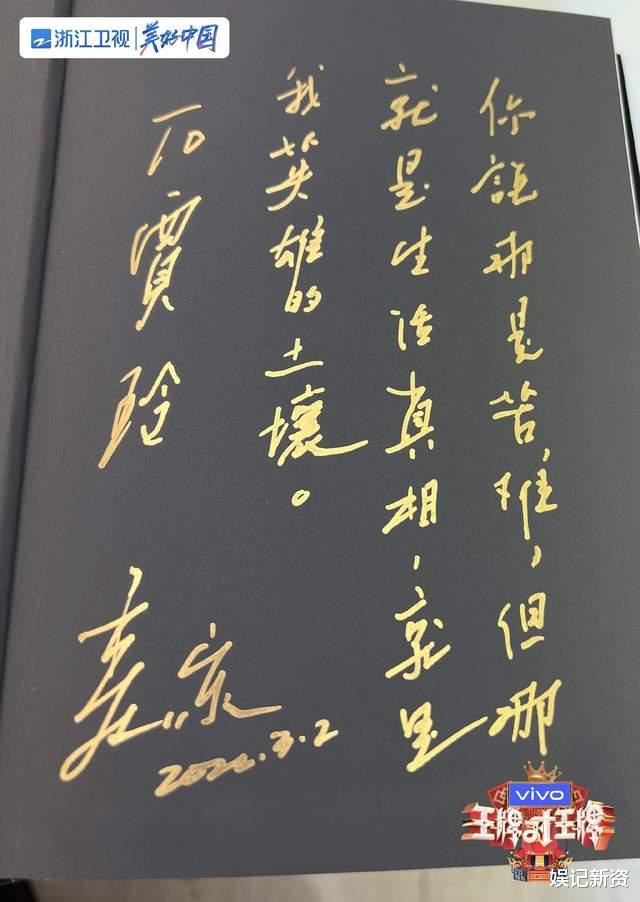 浙江卫视 美好中国
你說那是苦难，但那
就是生活真相，就是
我英雄的土壤。
TO賈玲
vivo
王牌对王牌
娱记新资